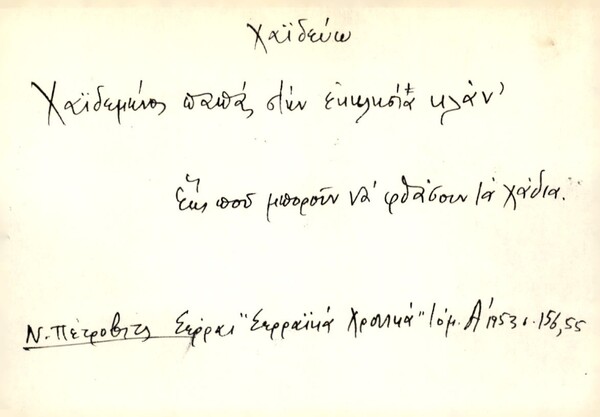 Χαϊδεύω
Χαϊδεμένος παπάς στην εκκλησιά κλάν'
Έως που μπορούν να φθάσουν τα χάδια.
Ν. Πέτροβιτς Σέρραι "Σερραϊκά Χρονικά" τόμ. Α' 1953 σ. 156,55